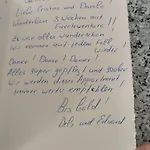 Liebe Cristina und Danilo
Wunderbare 3 Wochen mit
Feuerwerken !!
Es war alles Wunderschön
Wir kommen auf jeden Fall
wieder
Danke! Danke! Danke!
Alles super gepflegt und sauber
Wir werden dieses Appartment
immer weiter empfehlen!
Bis bald!
Dols und Eduard